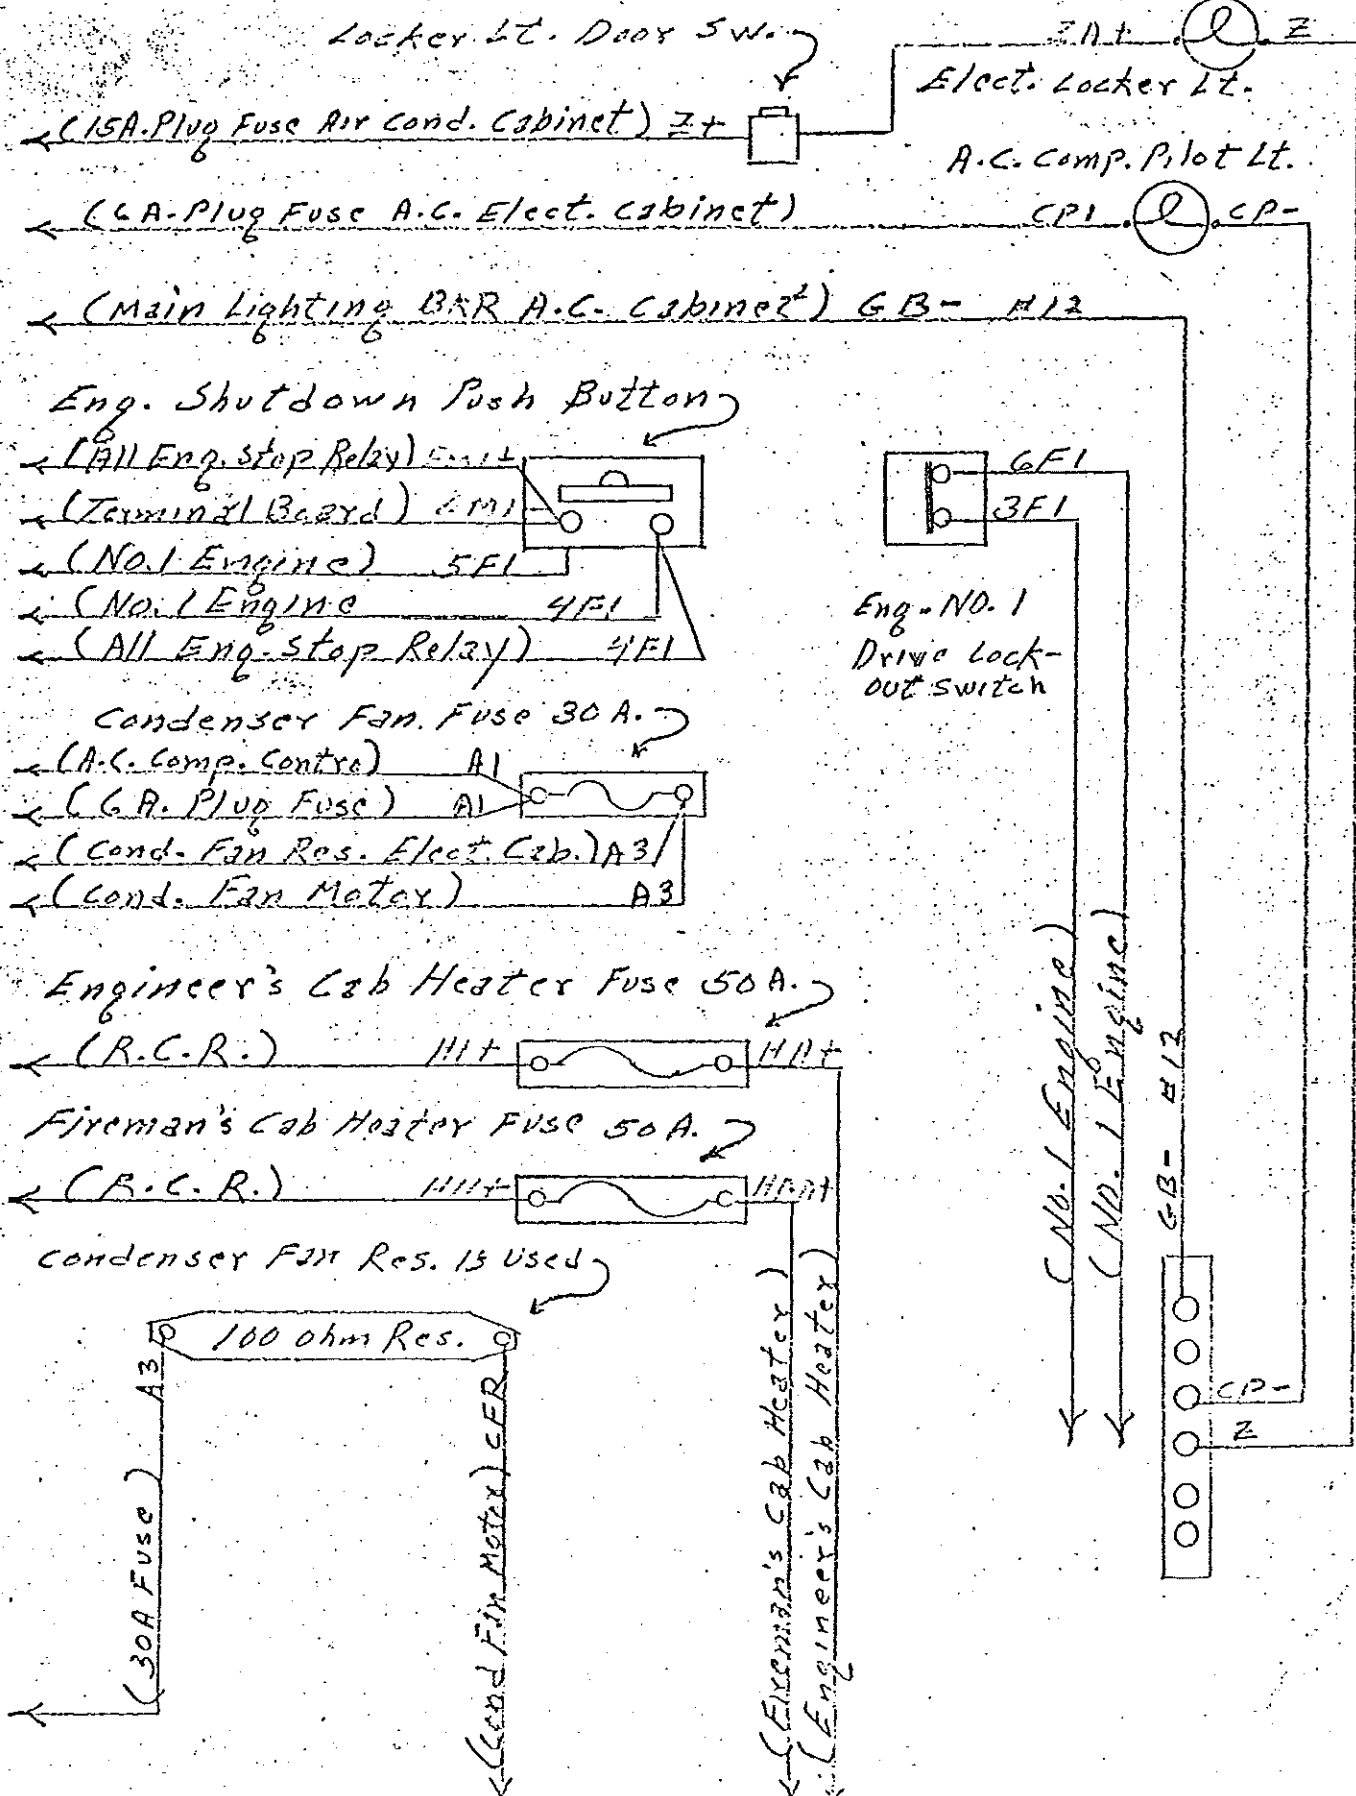 Locker Lt. Door Sw.
ZA+ Z
Elect. Locker Lt.
(15A. Plug Fuse Air Cond. Cabinet) Z+
A.C. Comp. Pilot Lt.
(6A-Plug Fuse A.C. Elect. Cabinet) CP1 CP-
(Main Lighting BKR A.C. Cabinet) GB- #12
Eng. Shutdown Push Button
(All Eng. Stop Relay)
(Terminal Board)
(No.1 Engine) 5F1
(No. 1 Engine 4F1
(All Eng. Stop Relay) 4F1
6F1
3F1
Eng. No. 1
Drive Lock-
out Switch
Condenser Fan. Fuse 30 A.
(A.C. Comp. Contro) A1
(6 A. Plug Fuse) A1
(Cond. Fan Res. Elect. Cab.) A3
(Cond. Fan Motor) A3
Engineer's Cab Heater Fuse 50 A.
(R.C.R.) H1+ HA+
Fireman's Cab Heater Fuse 50 A.
(R.C.R.) HAA+
Condenser Fan Res. Is Used
100 ohm Res.
(30A Fuse) A3
(Cond Fan Motor) CFR
(Fireman's Cab Heater)
(Engineer's Cab Heater)
(No. 1 Engine)
(No. 1 Engine)
GB- #12
CP-
Z